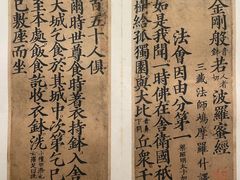 金剛般若波羅蜜經
三藏法師鳩摩羅什譯
法會因由分第一
如是我聞一時佛在舍衛國祇
樹給孤獨園與大比丘衆千
百五十人俱
爾時世尊食時著衣持鉢入舍
大城乞食於其城中次第乞已
至本處飯食訖收衣鉢洗
已敷座而坐